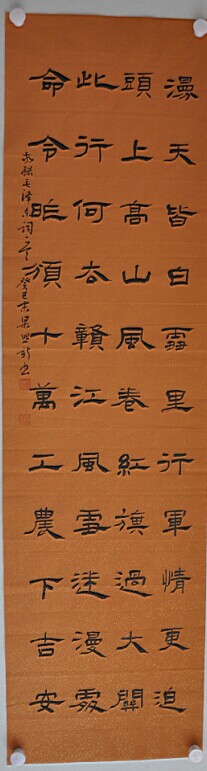 漫天皆白雪里行軍情更迫
頭上高山風卷紅旗過大關
此行何去贛江風雪迷漫處
命令昨頒十萬工農下吉安
録毛澤东詞 癸巳 梁 書